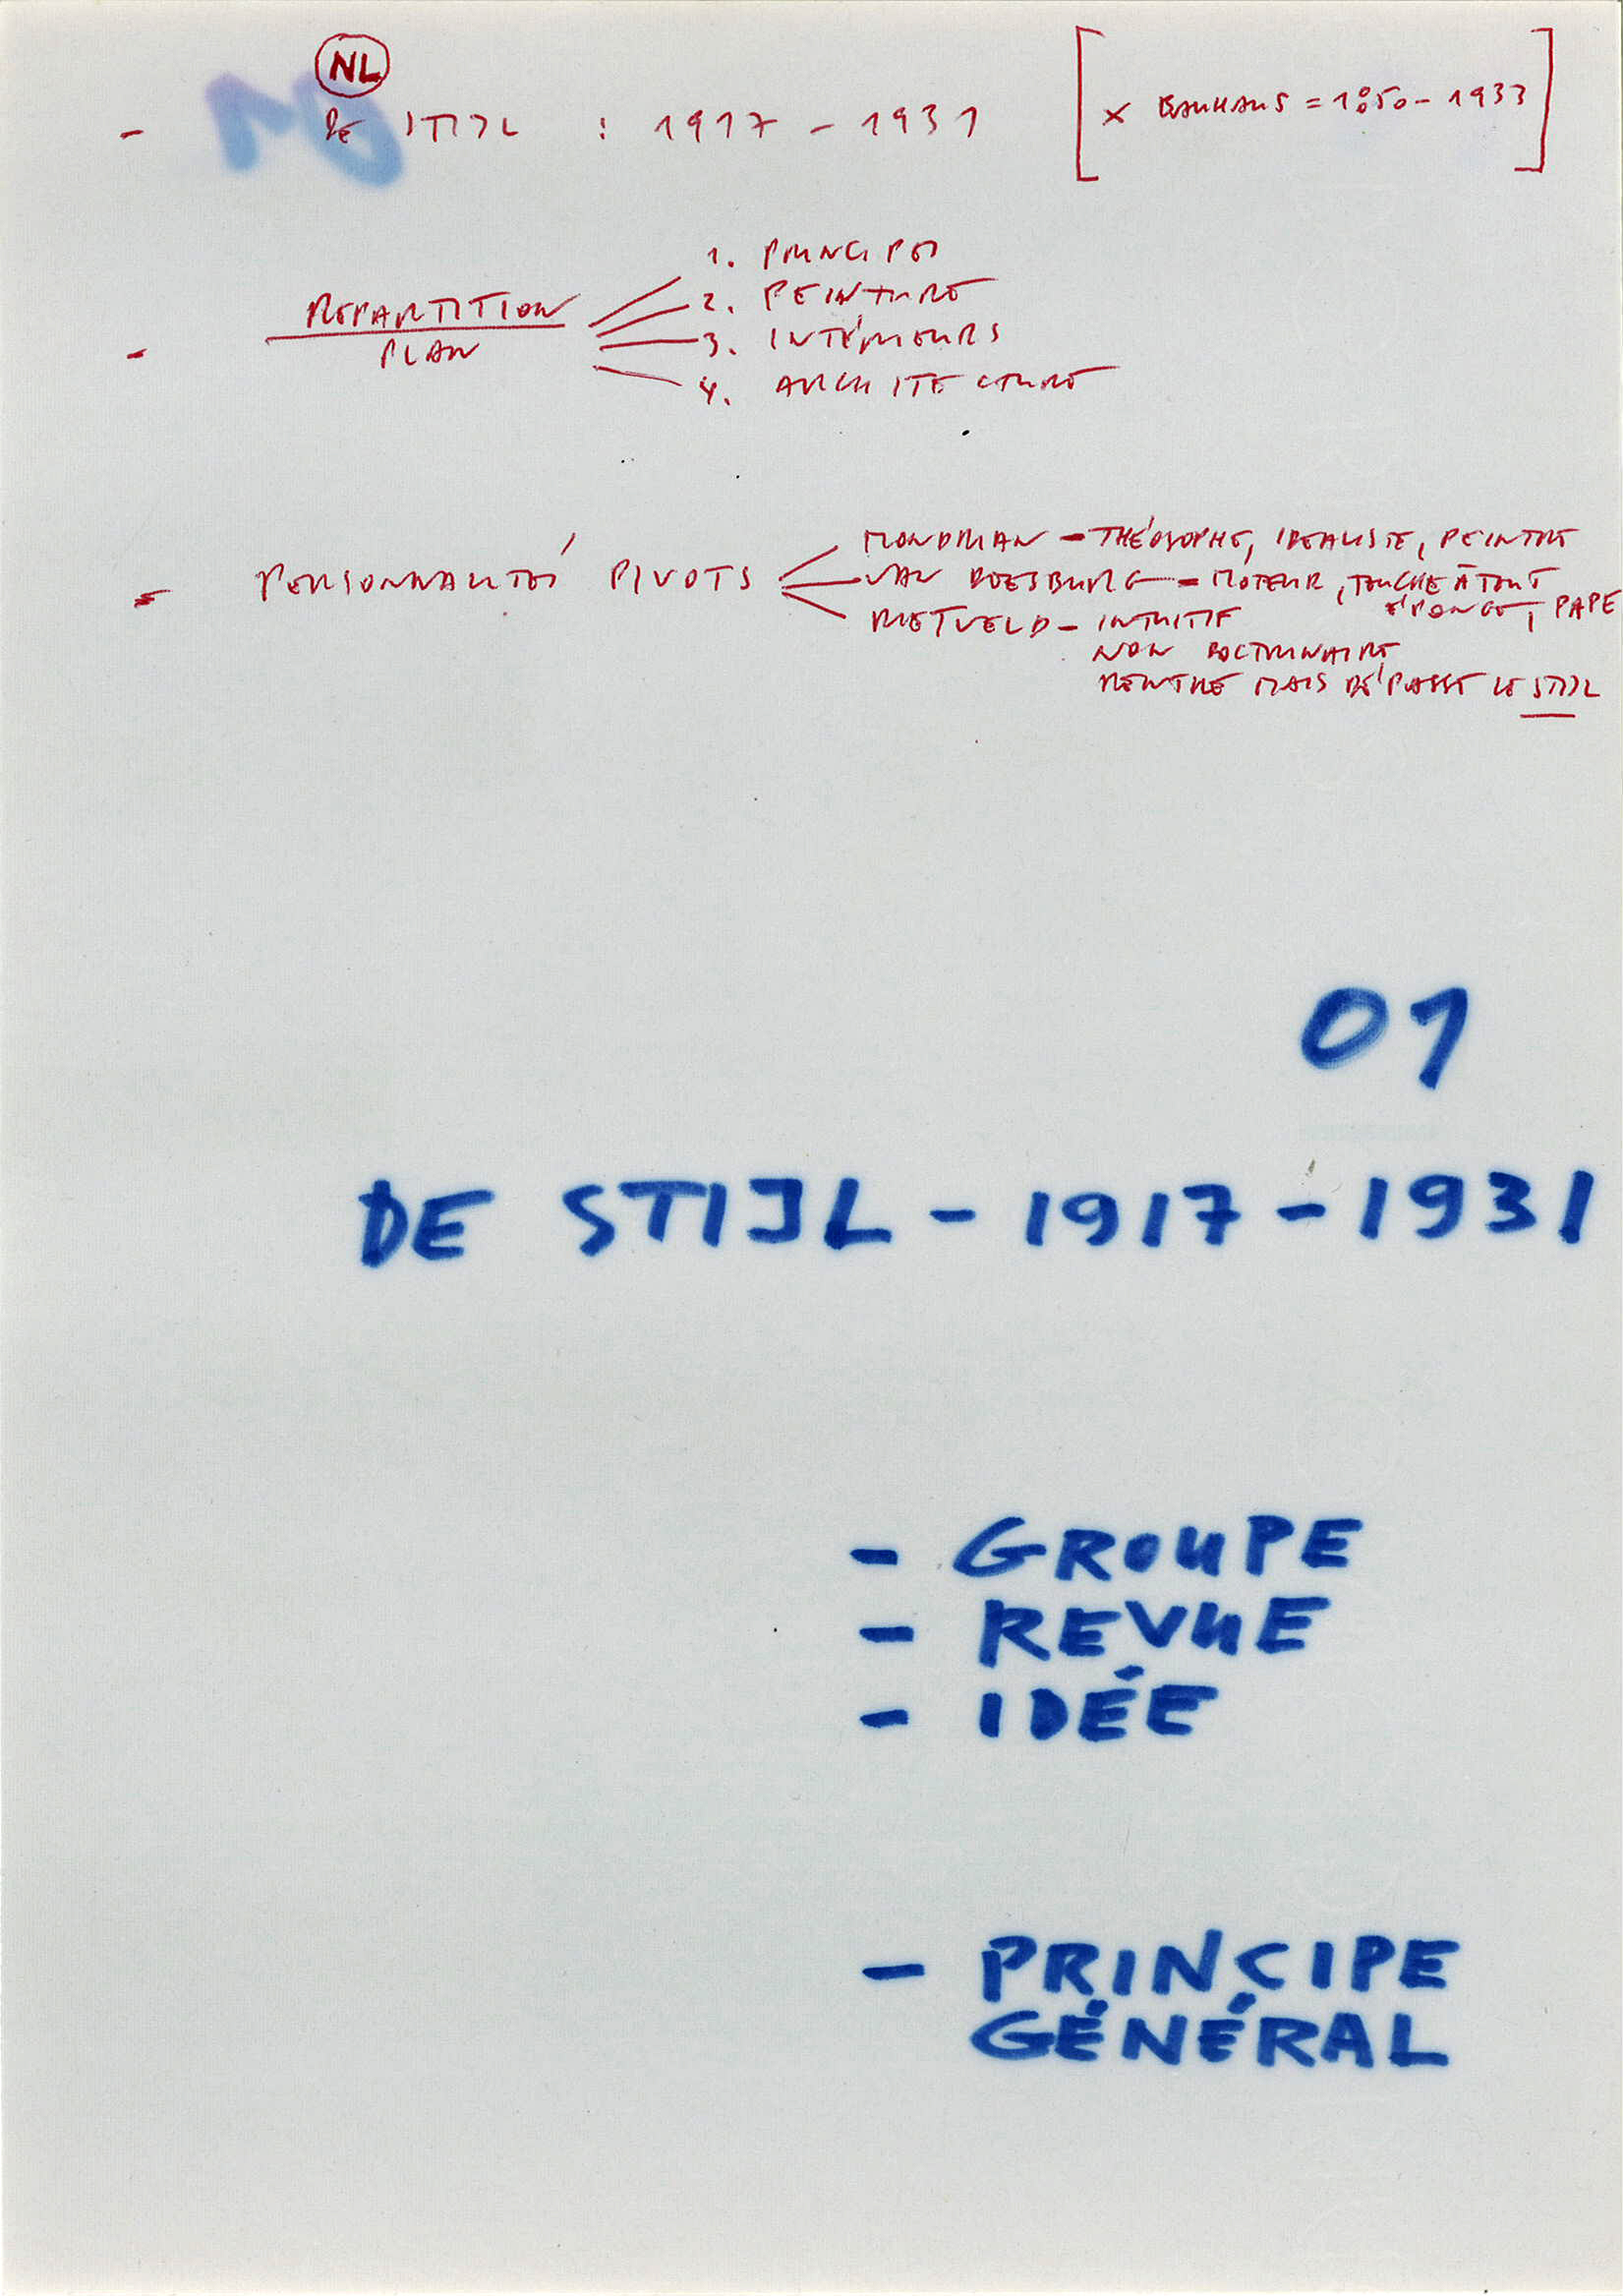 NL
- DE STIJL : 1917 - 1931 [× BAUHAUS = 1850 - 1933]
1. PRINCIPES
RÉPARTITION 2. PEINTURE
- PLAN 3. INTÉRIEURS
4. ARCHITECTURE
MONDRIAN - THÉOSOPHE, IDEALISTE, PEINTRE
- PERSONNALITÉS PIVOTS VAN DOESBURG - MOTEUR, TOUCHE À TOUT
ÉPONGE, PAPE
RIETVELD - INTUITIF
NON DOCTRINAIRE
MONTRE MAIS DÉPASSE LE STIJL
01
DE STIJL - 1917 - 1931
- GROUPE
- REVUE
- IDÉE
- PRINCIPE
GÉNÉRAL